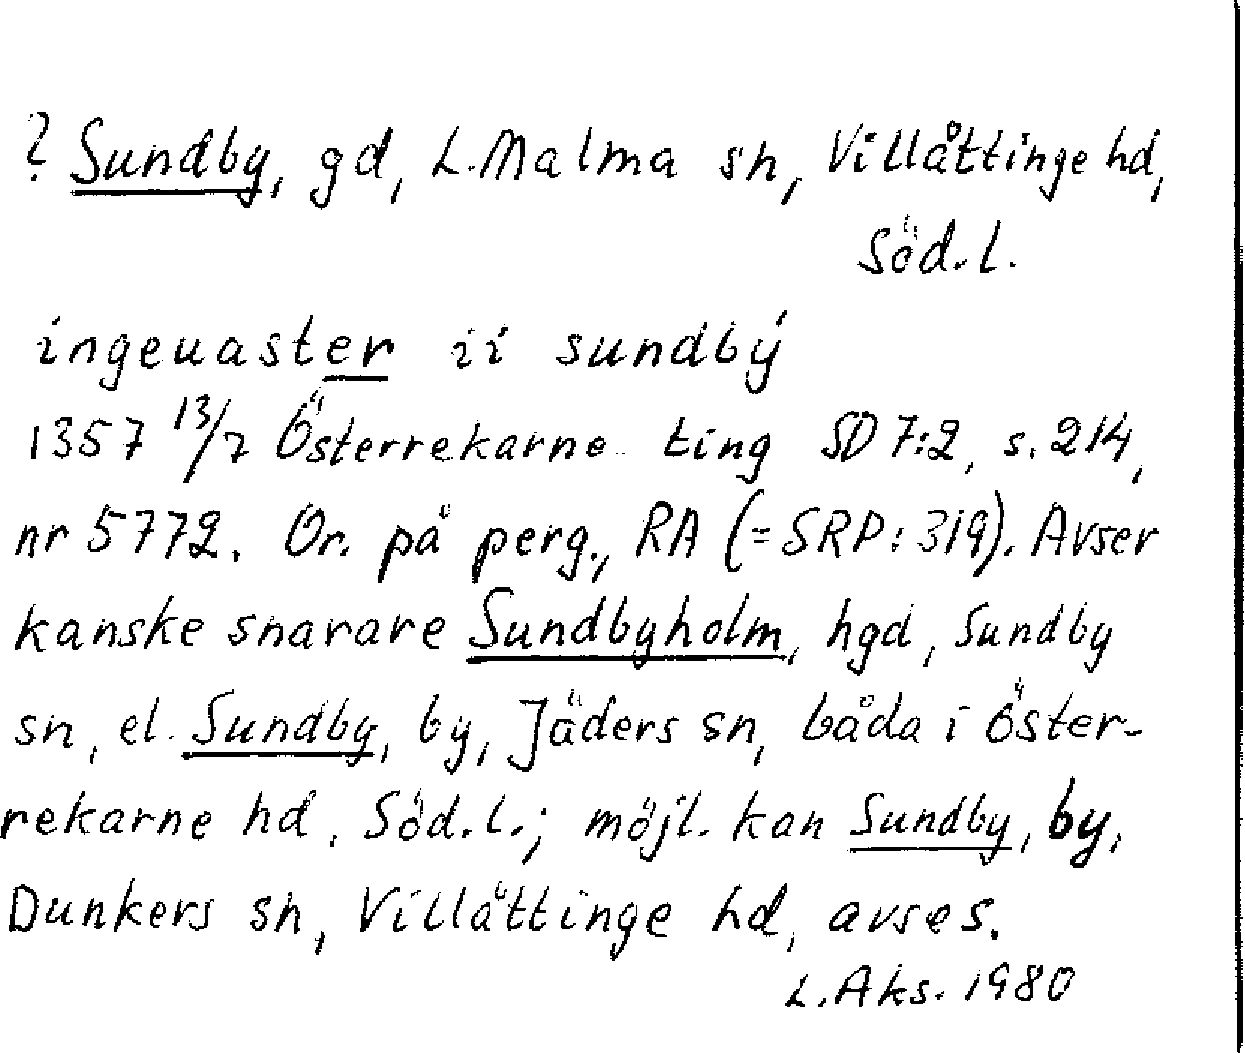 ? Sundby, gd, L. Malma sn, Villåttinge hd,
Söd.l.
ingeuaster ii sundbý
1357 13/7 Österrekarne ting SD 7:2, s. 214,
nr 5772. Or. på perg., RA (=SRP: 319). Avser
kanske snarare Sundbyholm, hgd, Sundby
sn, el. Sundby, by, Jäders sn, båda i Öster-
rekarne hd, Söd.l.; möjl. kan Sundby, by,
Dunkers sn, Villåttinge hd, avses.
L. Aks. 1980